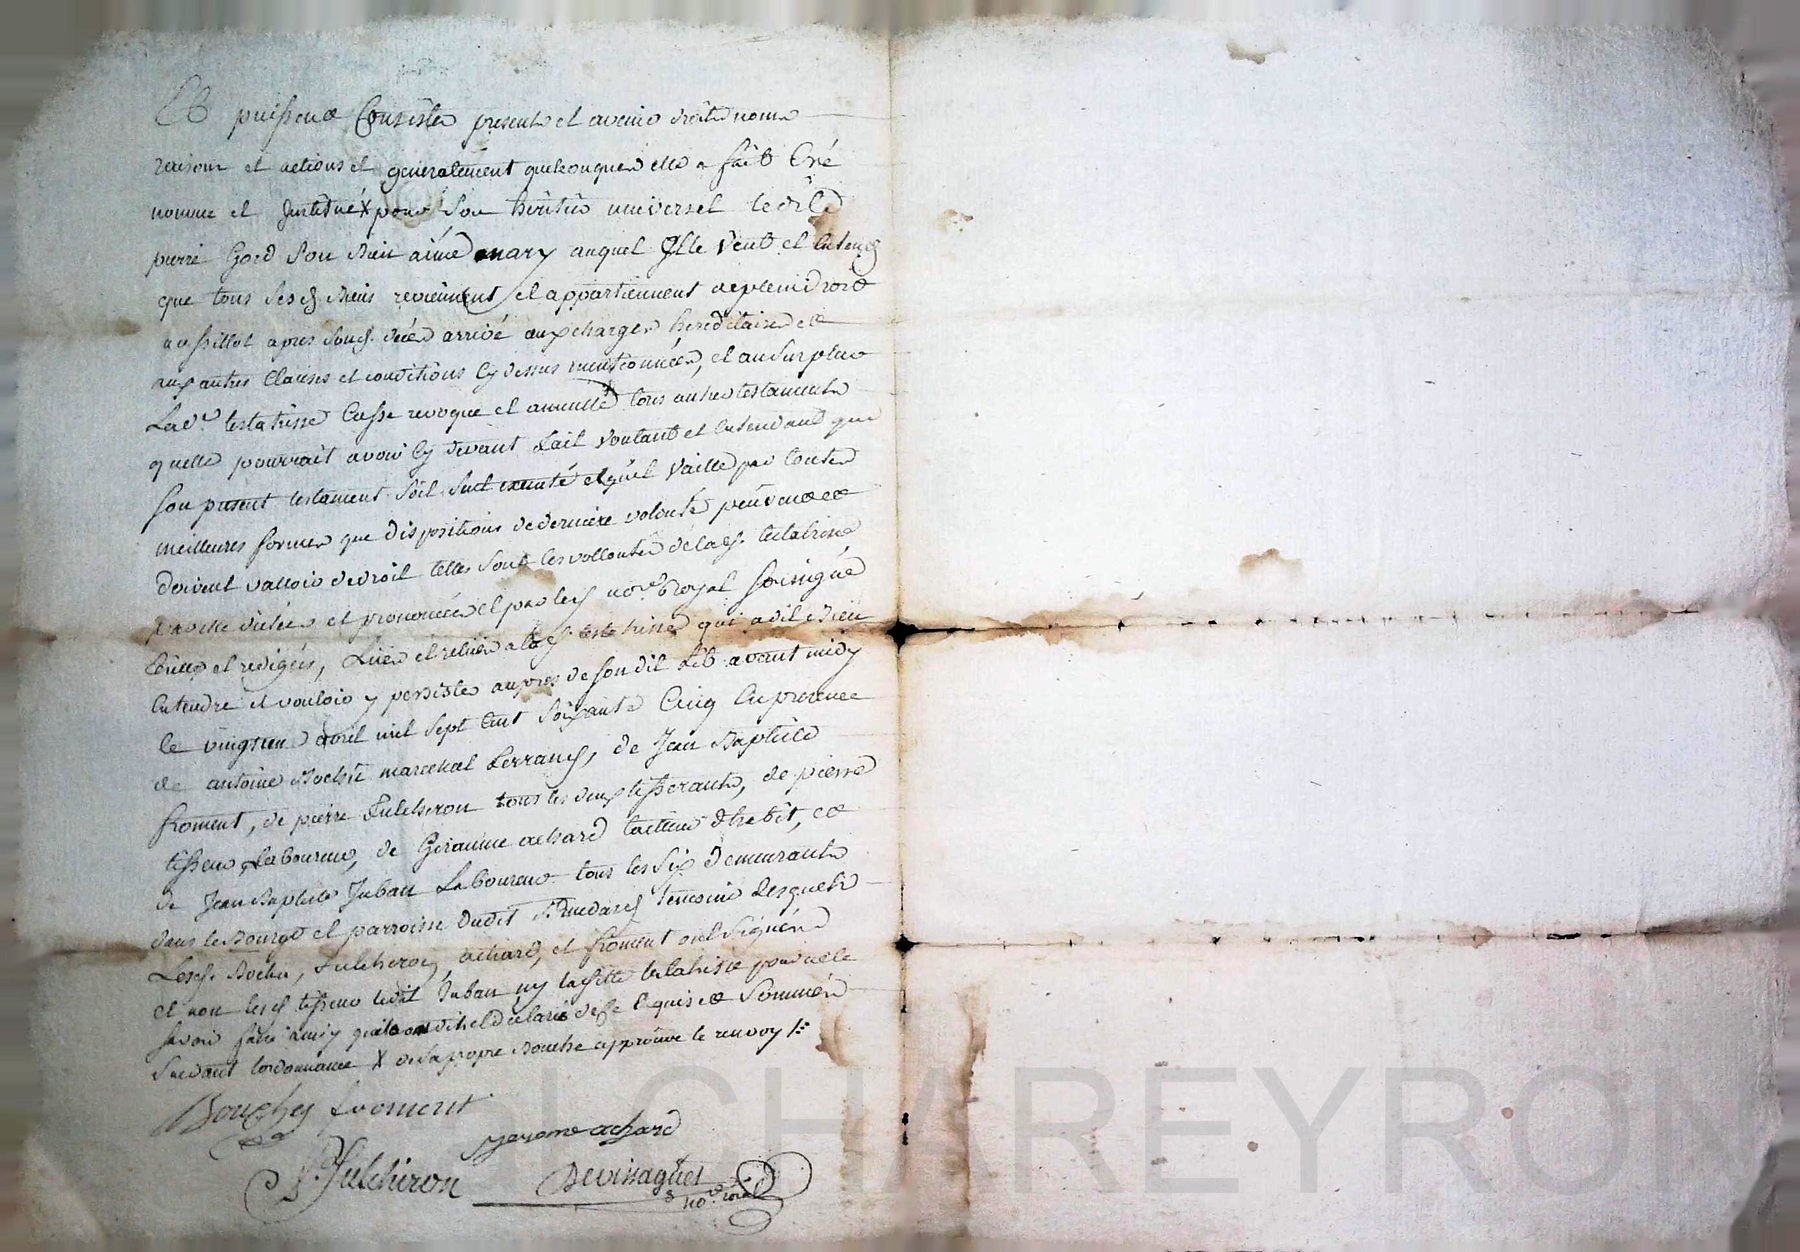 Et puissent Consister presents et avenir droits noms
raisons et actions et generalement quelconques elle a fait Crée
nomme et Institué X pour Son heritier universel ledit
pierre Gord Son bien aimé mary auquel Elle veut et Entend
que tous Sesd. biens reviennent et appartiennent de plein droit
aussittot apres Sond. décés arrivé aux charges hereditaires et
aux autres Clauses et conditions Cy dessus mentionnées, et au Surplus
Lad.e testatrisse Casse revoque et annulle tous autres testaments
quelle pourrait avoir Cy devant fait voulant et Entendant que
Son present testament Soit Seul executé et quil Vaille par toutes
meilleures formes que dispositions de derniere volonté peuvent et
doivent valloir de droit telles Sont les vollontés de lad. testatrisse
par elle dictées et prononcées et par led. no.re Royal Soussigné
Ecrittes et redigées, Luës et relues a lad. testatrisse qui a dit bien
Entendre et vouloir y persister aupres de Son dit Lit avant midy
le vingt un avril mil Sept Cent Soixante Cinq En presence
de antoine Bochu marechal ferrand, de Jean Baptiste
froment, de pierre Fulchiron tous les deux tisserants, de pierre
tisseur Laboureur, de Geraume achard tailleur dhabit, et
de Jean Baptiste Juban Laboureur tous les Six demeurants
dans le Bourg et parroisse dudit St. medard temoins Desquels
Lesd. Bochu, Fulchiron, achard, et froment ont Signés
et non lesd. tisseur ledit Juban ny laditte testatrisse pour ne le
Savoir faire ainsy quils ont dit et declaré de ce Enquis et Sommés
Suivant lordonnance X de sa propre Bouche approuve le renvoy
froment
Jerome achard
P. Fulchiron
Devissaguet
no.re roial
CHAREYRON